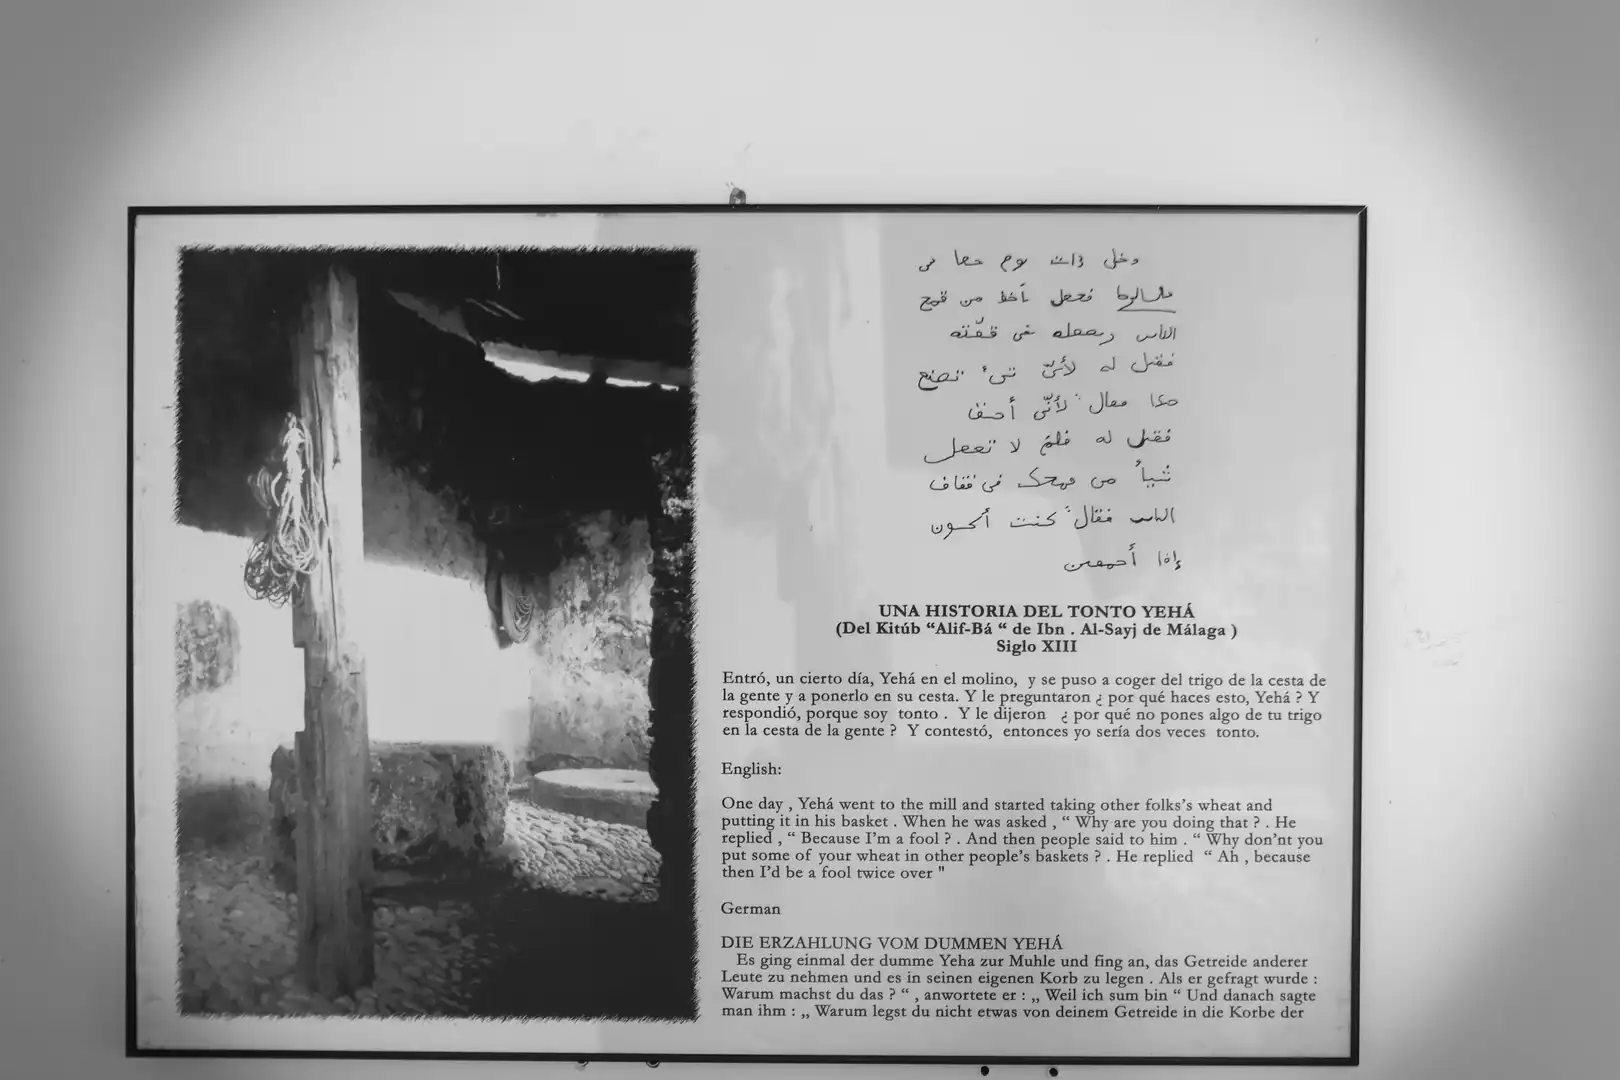 دخل ذات يوم جحا في
فجعل يأخذ من قمح
الناس ويجعله في قفّته
فقيل له لأيّ شيء تصنع
هذا فقال لأنّي أحمق
فقيل له فلم لا تجعل
شيأ من قمحك في قفاف
الناس فقال كنت أكون
إذا أحمقين
UNA HISTORIA DEL TONTO YEHÁ
(Del Kitúb “Alif-Bá “ de Ibn . Al-Sayj de Málaga )
Siglo XIII
Entró, un cierto día, Yehá en el molino, y se puso a coger del trigo de la cesta de
la gente y a ponerlo en su cesta. Y le preguntaron ¿ por qué haces esto, Yehá ? Y
respondió, porque soy tonto . Y le dijeron ¿ por qué no pones algo de tu trigo
en la cesta de la gente ? Y contestó, entonces yo sería dos veces tonto.
English:
One day , Yehá went to the mill and started taking other folks’s wheat and
putting it in his basket . When he was asked , “ Why are you doing that ? . He
replied , “ Because I’m a fool ? . And then people said to him . “ Why don’nt you
put some of your wheat in other people’s baskets ? . He replied “ Ah , because
then I’d be a fool twice over "
German
DIE ERZAHLUNG VOM DUMMEN YEHÁ
Es ging einmal der dumme Yeha zur Muhle und fing an, das Getreide anderer
Leute zu nehmen und es in seinen eigenen Korb zu legen . Als er gefragt wurde :
Warum machst du das ? “ , anwortete er : „ Weil ich sum bin “ Und danach sagte
man ihm : „ Warum legst du nicht etwas von deinem Getreide in die Korbe der